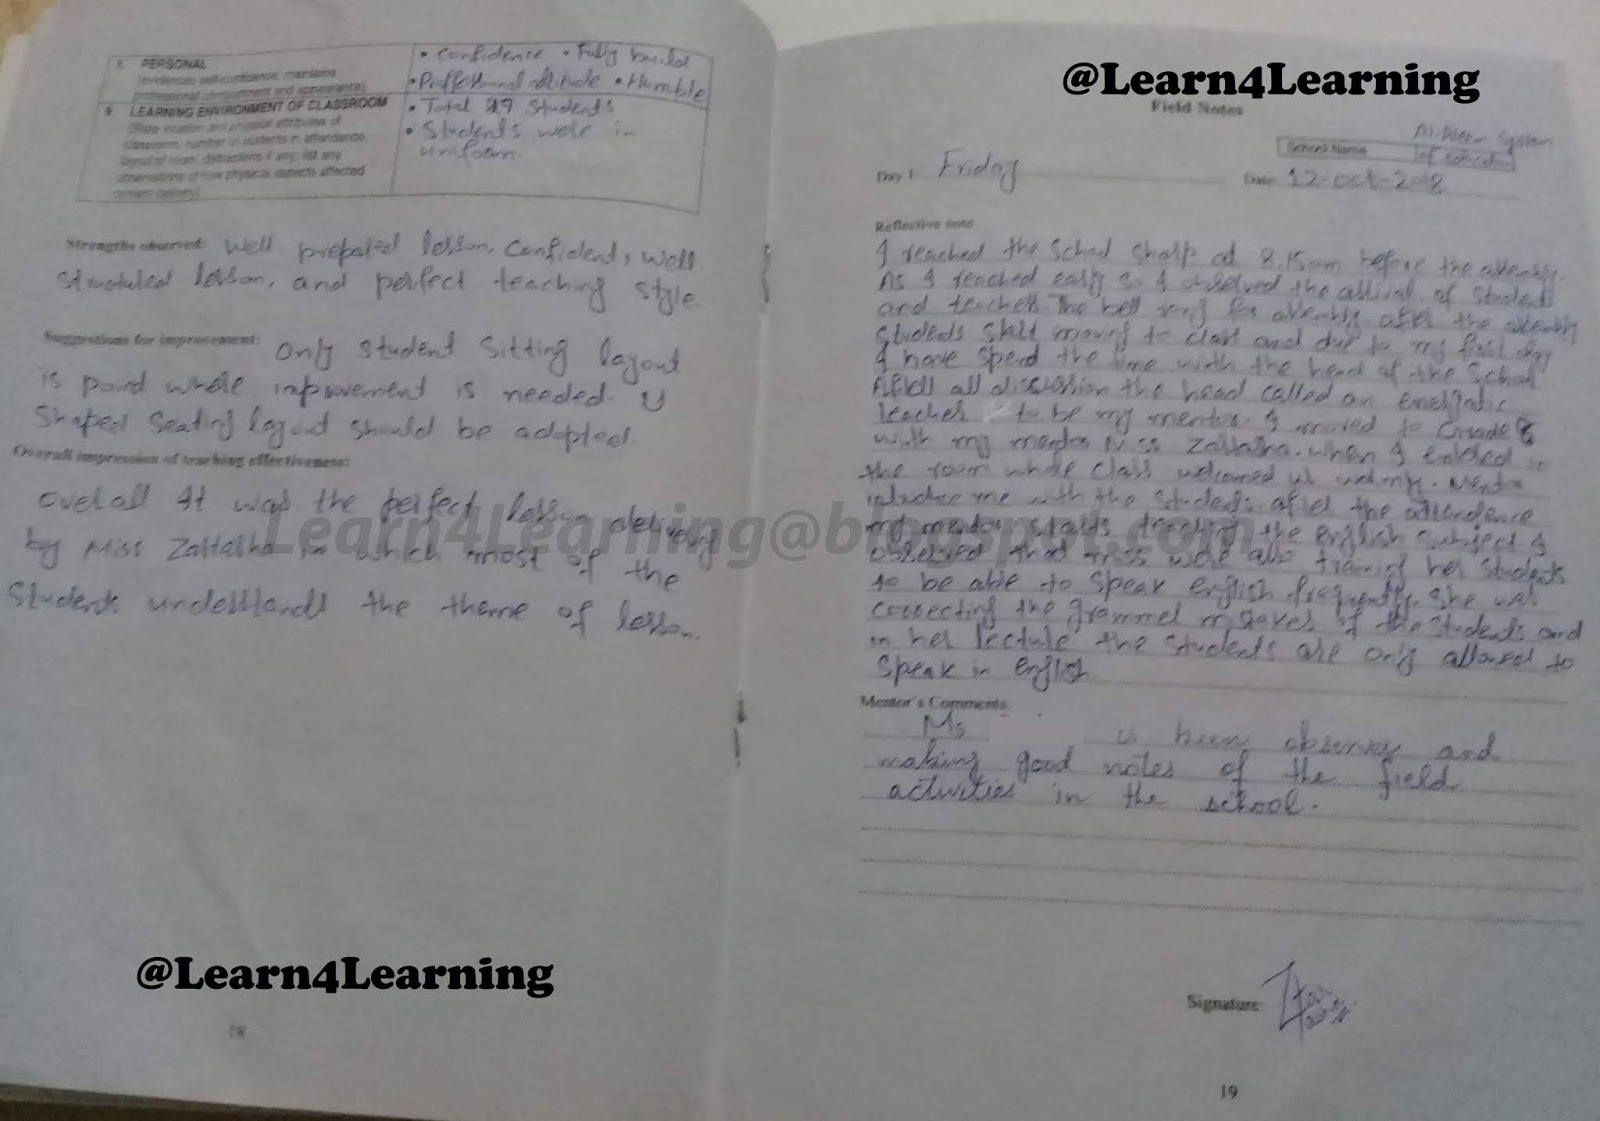 8. PERSONAL
(evidences self-confidence, maintains
professional comportment and appearance)
• Confidence • Fully build
• Proffessional attitude • Humble
9. LEARNING ENVIRONMENT OF CLASSROOM
(State location and physical attributes of
classroom, number of students in attendance,
layout of room, distractions if any; list any
observations of how physical aspects affected
content delivery)
• Total 27 Students
• Students were in
uniform.
Strengths observed: Well prepared lesson, confident, well
structured lesson, and perfect teaching style.
Suggestions for improvement: Only student sitting layout
is point where improvement is needed. U
shaped seating layout should be adopted.
Overall impression of teaching effectiveness:
over all It was the perfect lesson delivery
by Miss Zartasha in which most of the
students understands the theme of lesson.
@Learn4Learning
18
Learn4Learning@blogspot.com
@Learn4Learning
Field Notes
School Name System
of education
Day 1: Friday Date: 12-oct-2018
Reflective note
I reached the School sharp at 8.15am before the assembly.
As I reached early so I observed the arrival of students
and teachers. The bell rang for assembly after the assembly
students start moving to class and due to my first day
I have spend the time with the head of the School
After all discussion the head called an energatic
teacher to be my mentor. I moved to Grade 8
with my mentor Miss Zartasha. when I entered in
the room whole class welcomed us Mentor
introduce me with the students. after the attendence
my mentor starts teaching the english subject I
observed that miss were also training her students
to be able to speak english frequently. She was
correcting the grammer mistakes of the students and
in her lecture the students are only allowed to
speak in english
Mentor's Comments:
Ms is been observer and
making good notes of the field
activities in the school.
Signature:
19